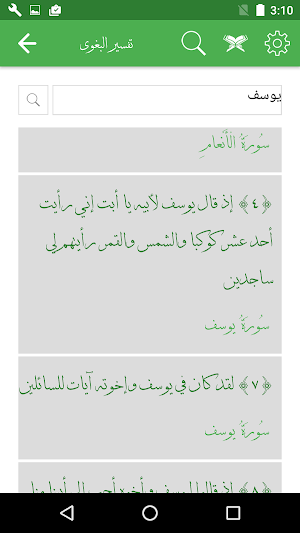 3:10
تفسير البغوى
يوسف
سُورَةُ الْأَنْعَامِ
﴿٤﴾ إذ قال يوسف لأبيه يا أبت إني رأيت
أحد عشر كوكبا والشمس والقمر رأيتهم لي
ساجدين
سُورَةُ يوسف
﴿٧﴾ لقد كان في يوسف وإخوته آيات للسائلين
سُورَةُ يوسف
﴿٨﴾ إذ قالوا ليوسف وأخوه أحب إلى أبينا منا